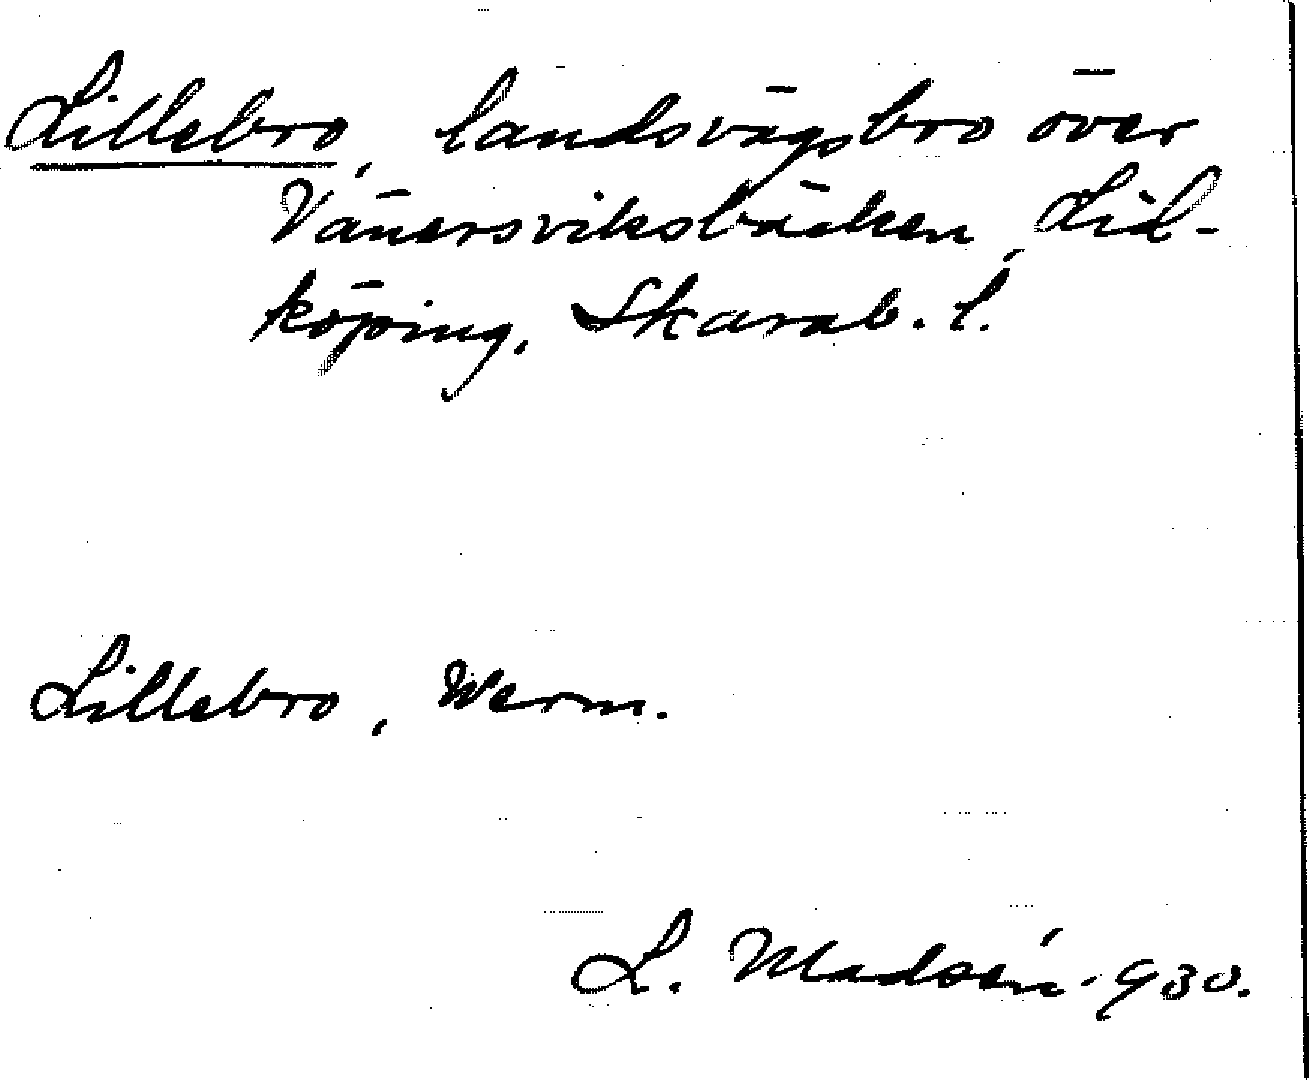 Lillebro, landsvägsbro över
Vänersviksbäcken, Lid-
köping, Skarab. l.
Lillebro, Werm.
L. Madsén 930.